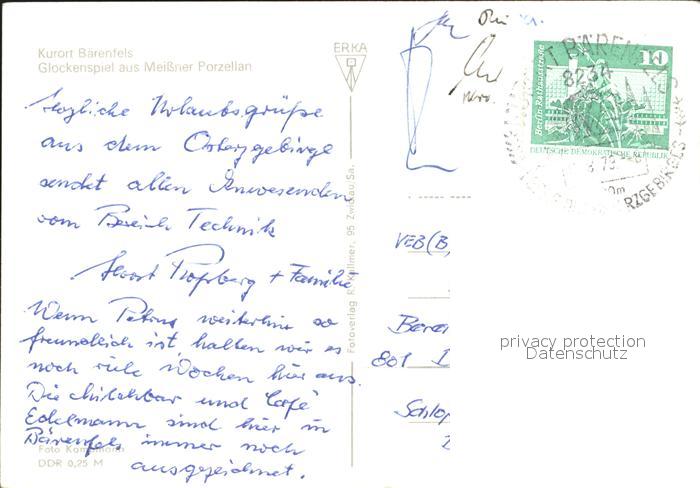 Kurort Bärenfels
Glockenspiel aus Meißner Porzellan
ERKA
herzliche Urlaubsgrüße
aus dem Osterzgebirge
sendet allen Anwesenden
vom Bereich Technik
Horst + Familie
Wenn Petrus weiterhin so
freundlich ist, halten wir es
noch viele Wochen hier aus.
Die Milchbar und Café
Edelmann sind hier in
Bärenfels immer noch
ausgezeichnet.
Foto
DDR 0,25 M
Fotoverlag R. Kallmer, 95 Zwickau/Sa.
10
Berlin · Rathausstraße
DEUTSCHE DEMOKRATISCHE REPUBLIK
KURORT BÄRENFELS
8234
ERZGEBIRGES
VEB (B
Berei
801
Schlo
privacy protection
Datenschutz